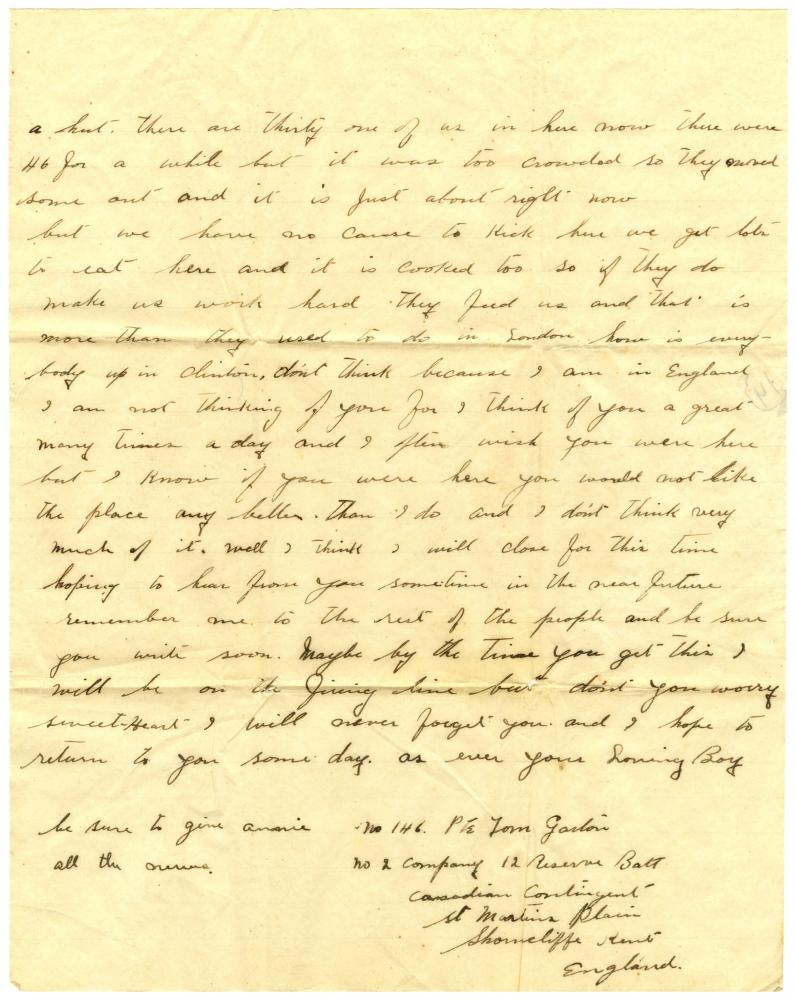 a hut. there are thirty one of us in here now there were
46 for a while but it was too crowded so they moved
some out and it is just about right now
but we have no cause to Kick here we get lots
to eat here and it is cooked too so if they do
make us work hard they feed us and that is
more than they used to do in London how is every-
body up in Clinton, don't think because I am in England
I am not thinking of you for I think of you a great
many times a day and I often wish you were here
but I know if you were here you would not like
the place any better. than I do and I don't think very
much of it. well I think I will close for this time
hoping to hear from you sometime in the near future
remember me to the rest of the people and be sure
you write soon. Maybe by the time you get this I
will be on the firing line but don't you worry
sweet-Heart I will never forget you. and I hope to
return to you some day. as ever your Loving Boy
be sure to give annie
all the news.
no 146. Pte Tom
no 2 Company 12 Reserve Batt
Canadian Contingent
st Martins Plain
Shorncliffe Kent
England.